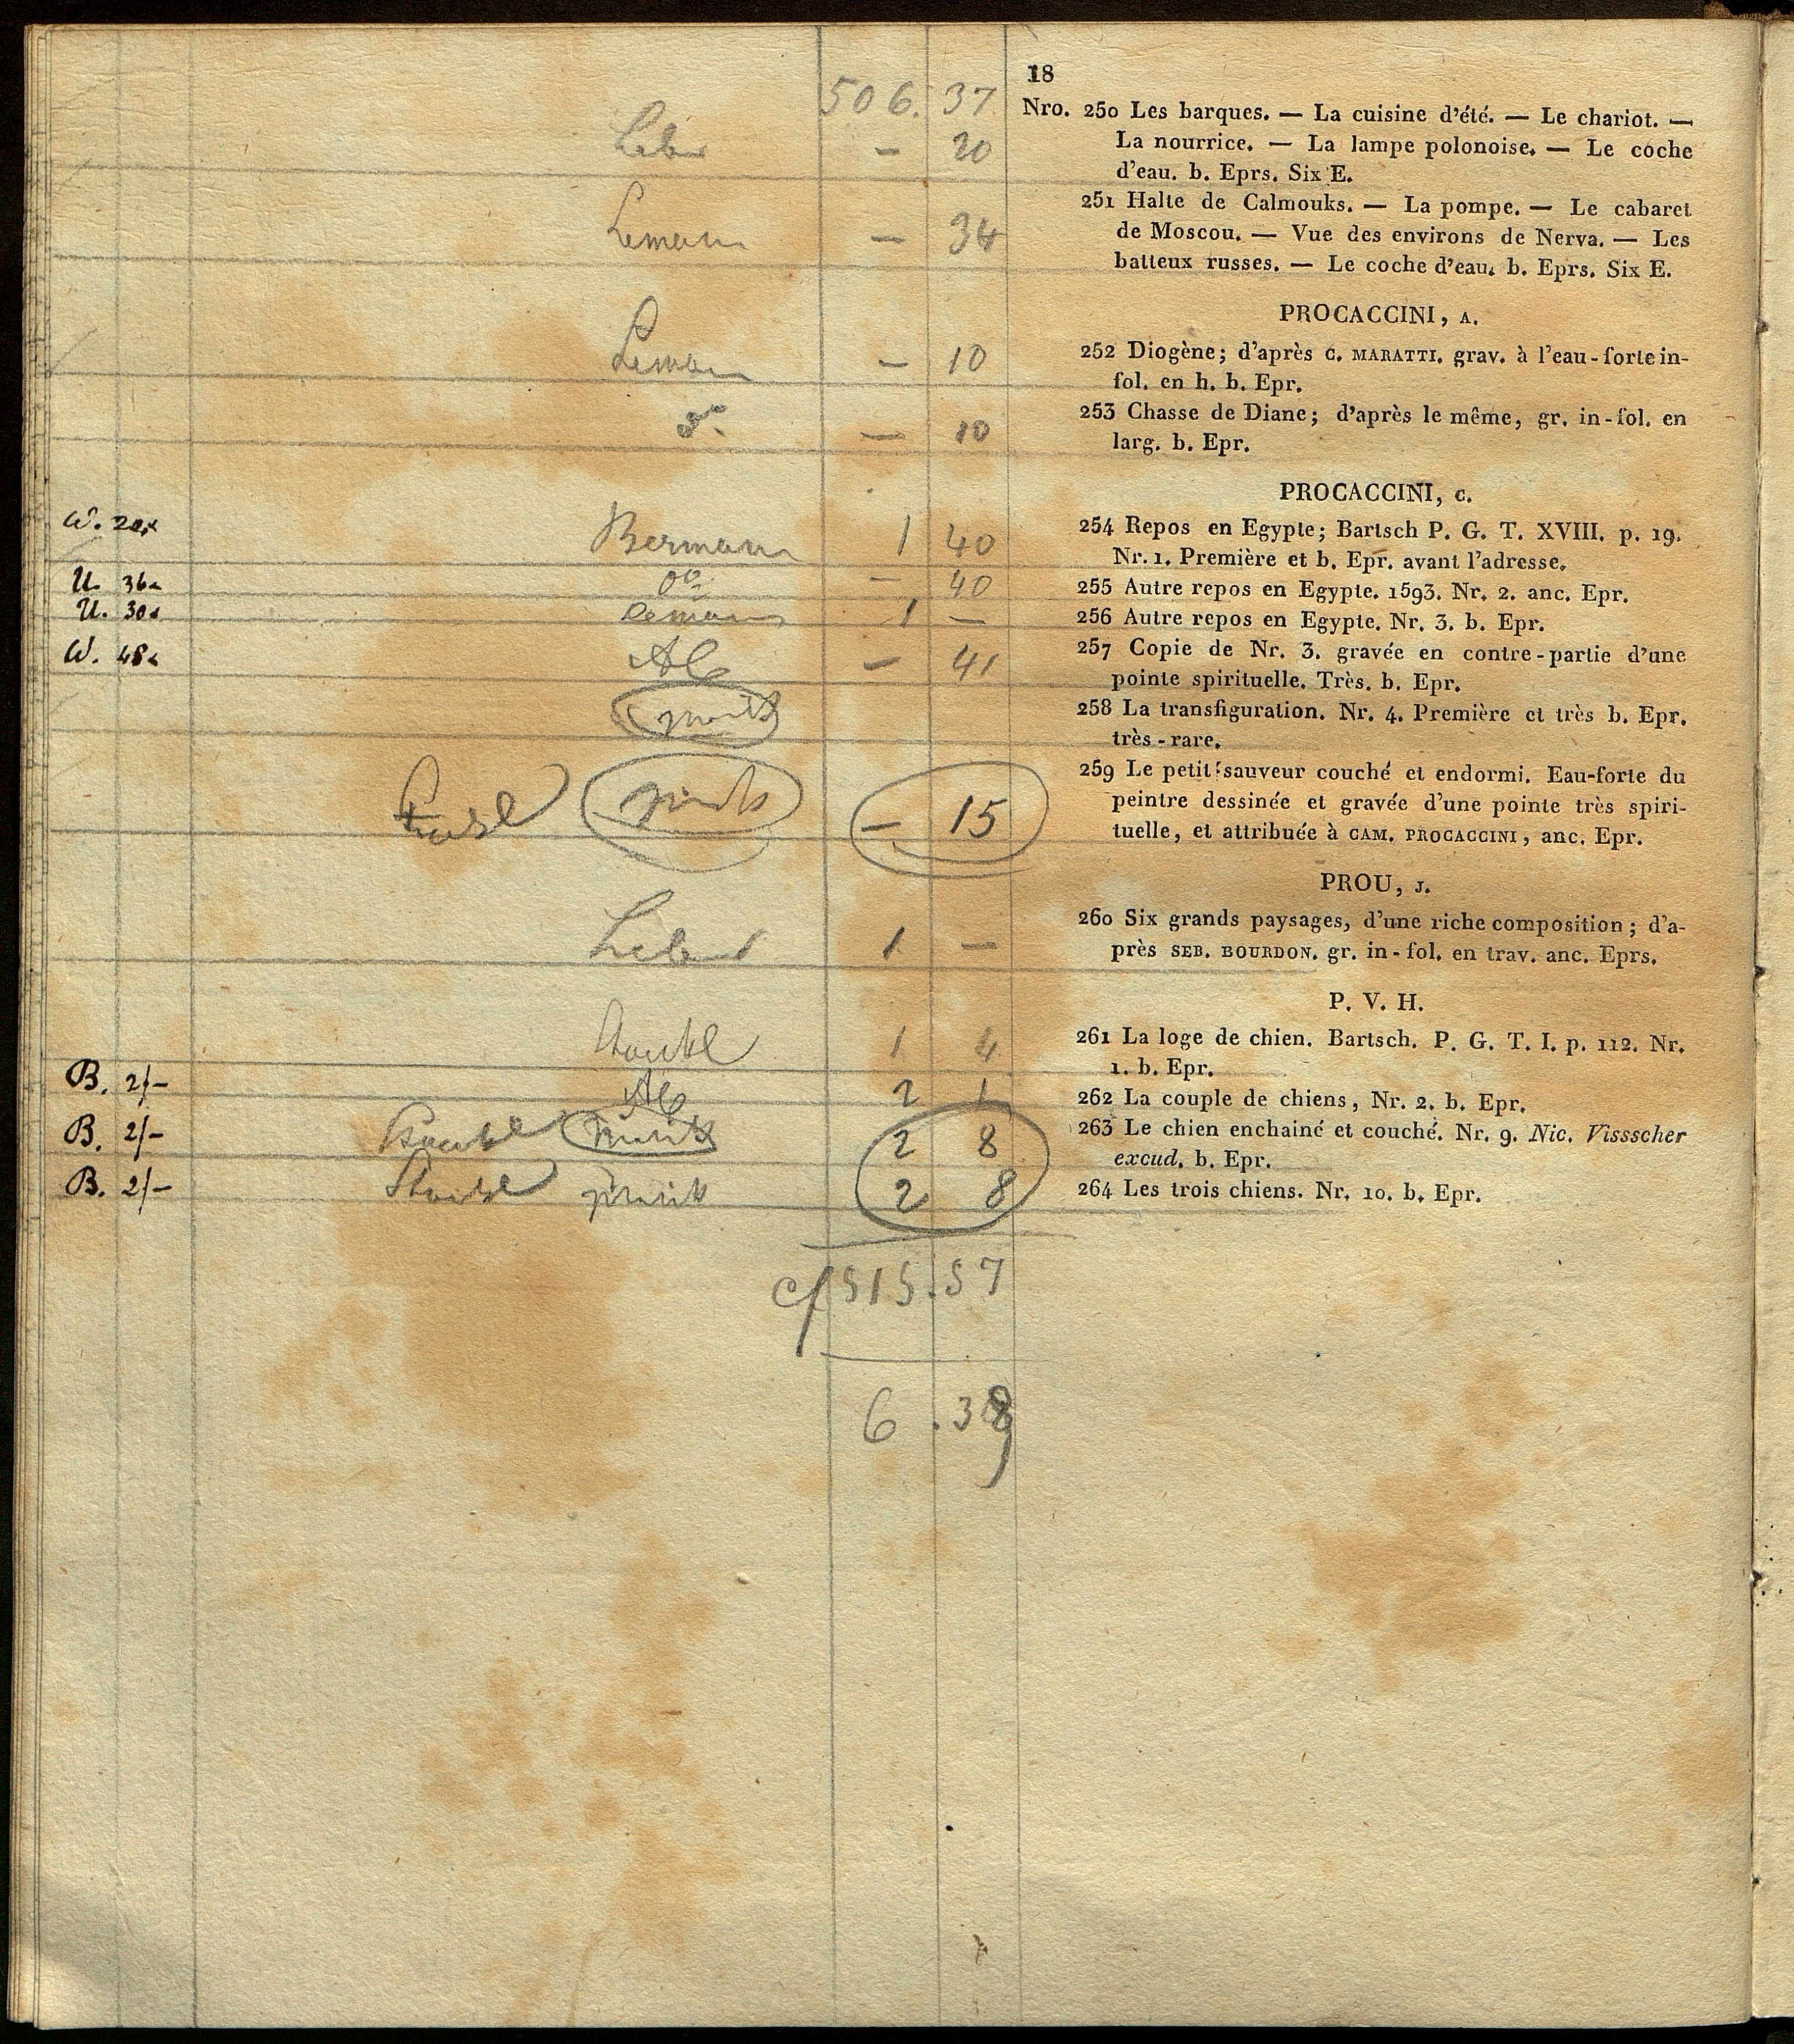 18
506. 37
Nro. 250 Les barques. — La cuisine d'été. — Le chariot. —
La nourrice. — La lampe polonoise. — Le coche
d'eau. b. Eprs. Six E.
— 20
251 Halte de Calmouks. — La pompe. — Le cabaret
de Moscou. — Vue des environs de Nerva. — Les
batteux russes. — Le coche d'eau. b. Eprs. Six E.
Leman — 34
PROCACCINI, A.
252 Diogène; d'après C. MARATTI. grav. à l'eau-forte in-
fol. en h. b. Epr.
Leman — 10
253 Chasse de Diane; d'après le même, gr. in-fol. en
larg. b. Epr.
— 10
PROCACCINI, C.
W. 20x Berman 1 40
254 Repos en Egypte; Bartsch P. G. T. XVIII. p. 19.
Nr. 1. Première et b. Epr. avant l'adresse.
U. 36 — 40
255 Autre repos en Egypte. 1593. Nr. 2. anc. Epr.
U. 30 Leman 1 —
256 Autre repos en Egypte. Nr. 3. b. Epr.
W. 48 Alb — 41
257 Copie de Nr. 3. gravée en contre-partie d'une
pointe spirituelle. Très. b. Epr.
258 La transfiguration. Nr. 4. Première et très b. Epr.
très-rare.
259 Le petit sauveur couché et endormi. Eau-forte du
peintre dessinée et gravée d'une pointe très spiri-
tuelle, et attribuée à CAM. PROCACCINI, anc. Epr.
— 15
PROU, J.
260 Six grands paysages, d'une riche composition; d'a-
près SEB. BOURDON. gr. in-fol. en trav. anc. Eprs.
1 —
P. V. H.
261 La loge de chien. Bartsch. P. G. T. I. p. 112. Nr.
1. b. Epr.
1 4
B. 2/— Alb 2 1
262 La couple de chiens, Nr. 2. b. Epr.
B. 2/— 2 8
263 Le chien enchainé et couché. Nr. 9. Nic. Vissscher
excud. b. Epr.
B. 2/— 2 8
264 Les trois chiens. Nr. 10. b. Epr.
cf 515.57
6.38